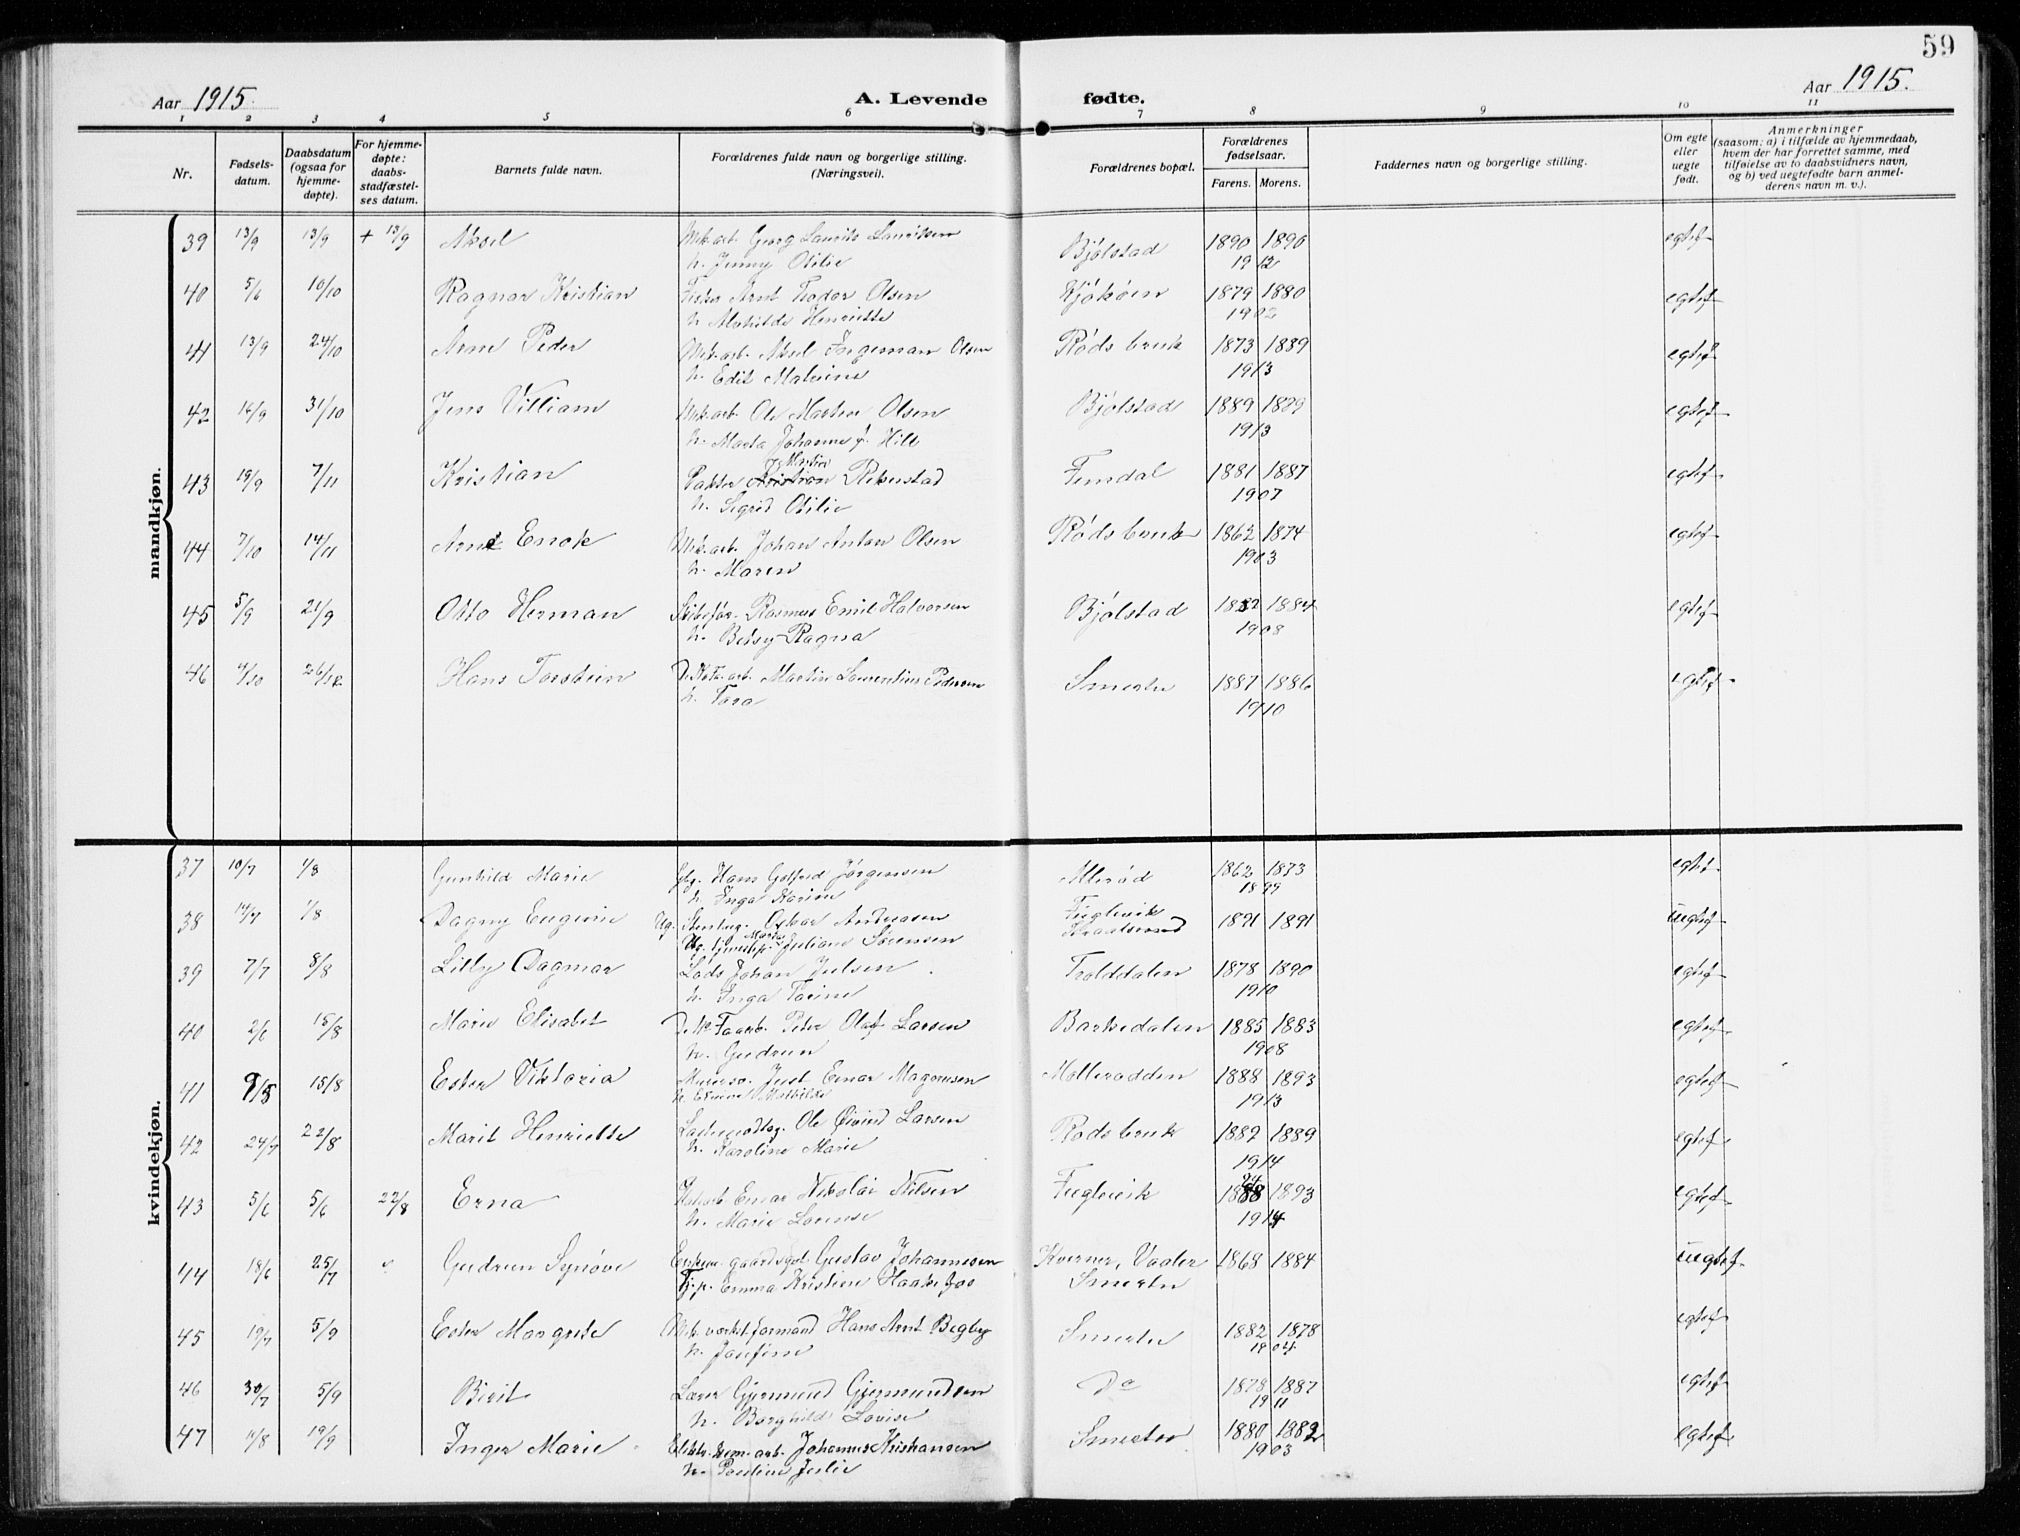 59
Aar 1915.
A. Levende fødte.
Aar 1915.
1 2 3 4 5 6 7 8 9 10 11
Nr.
Fødsels-
datum.
Daabsdatum
(ogsaa for
hjemme-
døpte).
For hjemme-
døpte:
daabs-
stadfæstel-
ses datum.
Barnets fulde navn.
Forældrenes fulde navn og borgerlige stilling.
(Næringsvei).
Forældrenes bopæl.
Forældrenes
fødselsaar.
Farens. Morens.
Faddernes navn og borgerlige stilling.
Om egte
eller
uegte
født.
Anmerkninger
(saasom: a) i tilfælde av hjemmedaab,
hvem der har forrettet samme, med
tilføielse av to daabsvidners navn,
og b) ved uegtefødte barn anmel-
derens navn m. v.).
mandkjøn.
39 13/9 13/9 + 13/9 Aksel Mek.arb. Georg Laurits Lauritsen Bjølstad 1890 1890 egtef
h. Jenny Otilie 1912
40 5/6 10/10 Ragnar Kristian Fisker Arnt Teodor Olsen Kjøkøen 1879 1880 egtef
h. Mathilde Henriette 1902
41 13/9 24/10 Arne Peder Mek.arb. Aksel Ingeman Olsen Røds bruk 1873 1889 egtef
h. Edit Malvine 1913
42 16/9 31/10 Jens Villiam Mek.arb. Ole Martin Olsen Bjølstad 1889 1889 egtef
h. Marta Johanne f. Hill 1913
43 19/9 7/11 Kristian Martin Rekustad Femdal 1881 1887 egtef
h. Sigrid Otilie 1907
44 7/10 14/11 Arne Enok Mek.arb. Johan Anton Olsen Røds bruk 1862 1874 egtef
h. Maren 1903
45 5/9 21/9 Otto Herman Skibsfør. Rasmus Emil Halvorsen Bjølstad 1882 1884 egtef
h. Betsy Ragna 1908
46 4/10 26/12 Hans Torstein Martin Laurentius Pedersen Smertu 1887 1886 egtef
h. Tora 1910
kvindekjøn.
37 10/7 1/8 Gunhild Marie Gbr. Hans Gotfred Jørgensen Allerød 1862 1873 egtef
h. Inga Karine 1899
38 14/7 1/8 Dagny Eugenie Ug. Stenhug. Oskar Andreasen Fuglevik 1891 1891 uegtef
Ug. tjenestep. Marta Juliane Sørensen
39 7/7 8/8 Lilly Dagmar Lods Johan Julsen Trolddalen 1878 1890 egtef
h. Inga Torine 1910
40 2/6 15/8 Marie Elisabet Peter Olaf Larsen Barkedalen 1885 1883 egtef
h. Gudrun 1908
41 9/5 15/8 Ester Viktoria Murersv. Just Einar Magnussen Molleradden 1888 1893 egtef
h. Mathilde 1913
42 24/7 22/8 Marit Henriette Ole Øivind Larsen Røds bruk 1882 1889 egtef
h. Karoline Marie 1914
43 5/6 5/6 22/8 Erna Einar Nikolai Nilsen Fuglevik 1888 1893 egtef
h. Marie Lovense 1914
44 18/6 25/7 Gudrun Synøve Enkem. gaardsgst Gustav Johannesen Kverner, Vaaler 1868 1884 uegtef
Tj.p. Emma Kristine Haakefos Smertu
45 19/7 5/9 Ester Margrete Mek. verkst.formand Hans Arnt Begby Smertu 1882 1878 egtef
h. Josefine 1904
46 30/7 5/9 Birit Lærer Gjermund Gjermundsen Do 1878 1887 egtef
h. Borghild Lovise 1911
47 11/8 19/9 Inger Marie Elektr.kem.arb. Johannes Kristiansen Smertu 1880 1882 egtef
h. Pauline Julie 1903